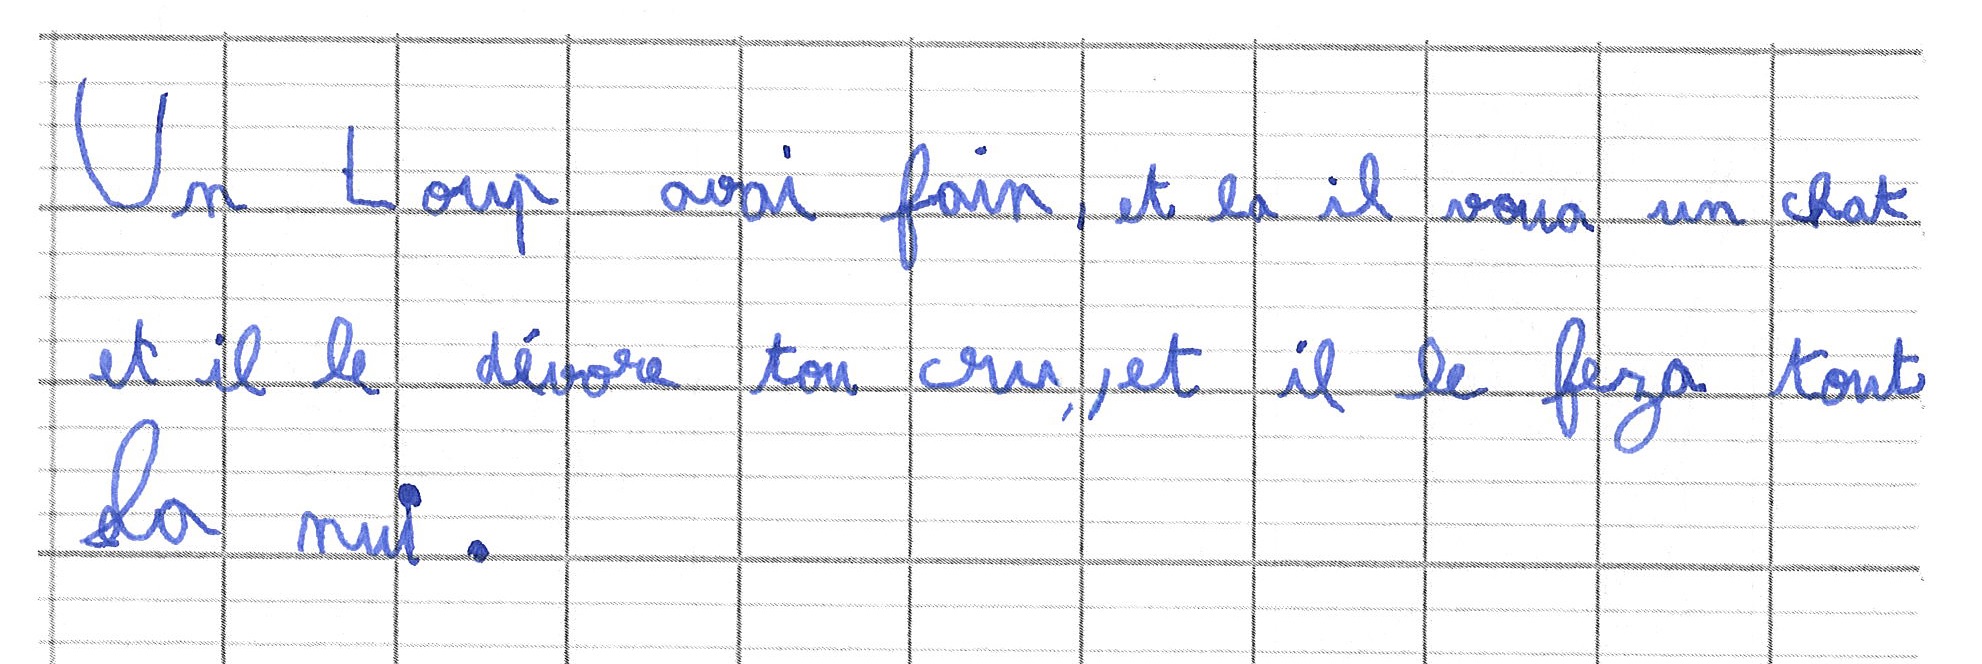 Un Loup avai fain, et la il voua un chat
et il le dévore tou cru,, et il le feza tout
La nui.